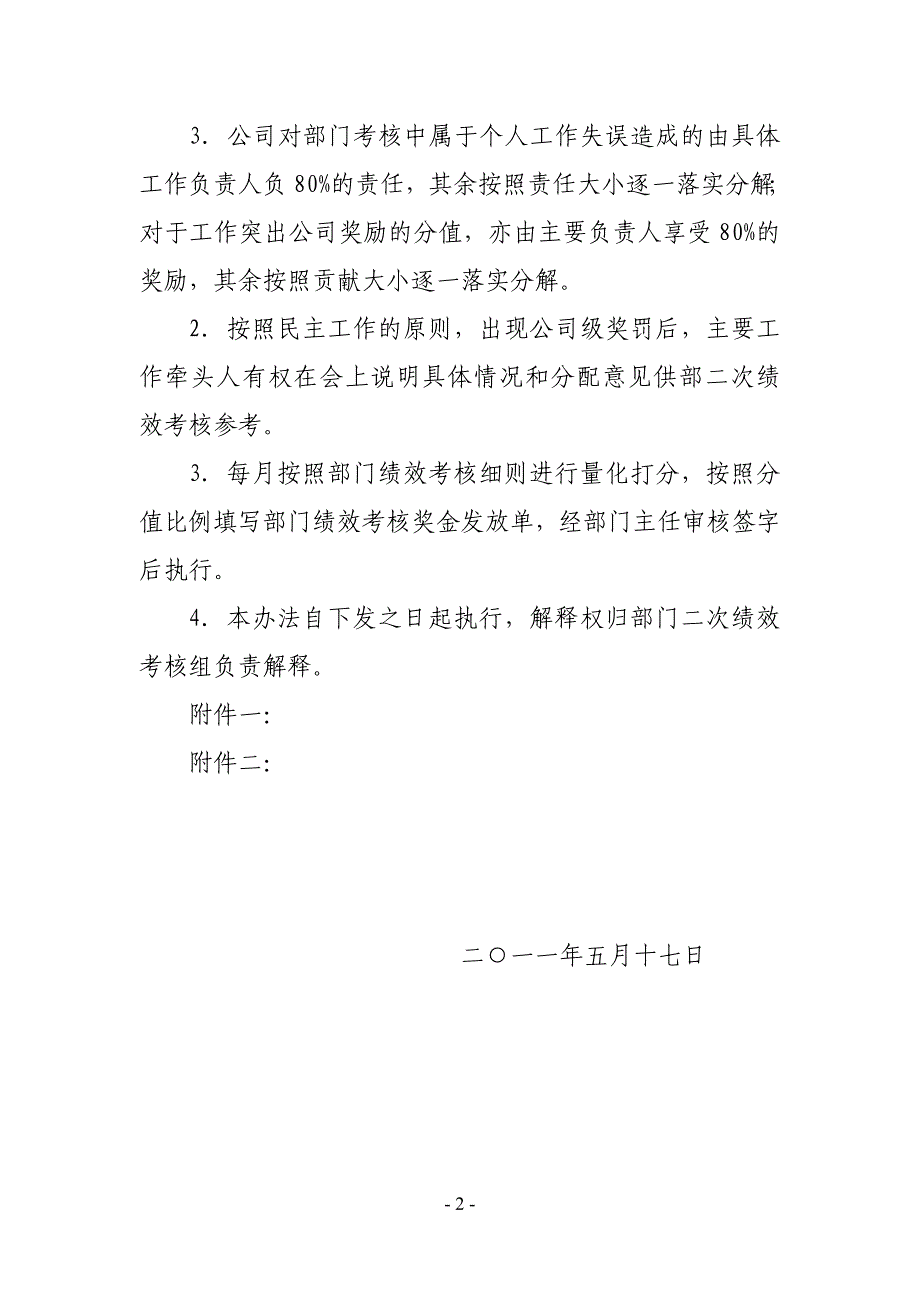 3. 公司对部门考核中属于个人工作失误造成的由具体
工作负责人负80%的责任，其余按照责任大小逐一落实分解；
对于工作突出公司奖励的分值，亦由主要负责人享受80%的
奖励，其余按照贡献大小逐一落实分解。
2. 按照民主工作的原则，出现公司级奖罚后，主要工
作牵头人有权在会上说明具体情况和分配意见供部二次绩
效考核参考。
3. 每月按照部门绩效考核细则进行量化打分，按照分
值比例填写部门绩效考核奖金发放单，经部门主任审核签字
后执行。
4. 本办法自下发之日起执行，解释权归部门二次绩效
考核组负责解释。
附件一：
附件二：
二〇一一年五月十七日
- 2 -